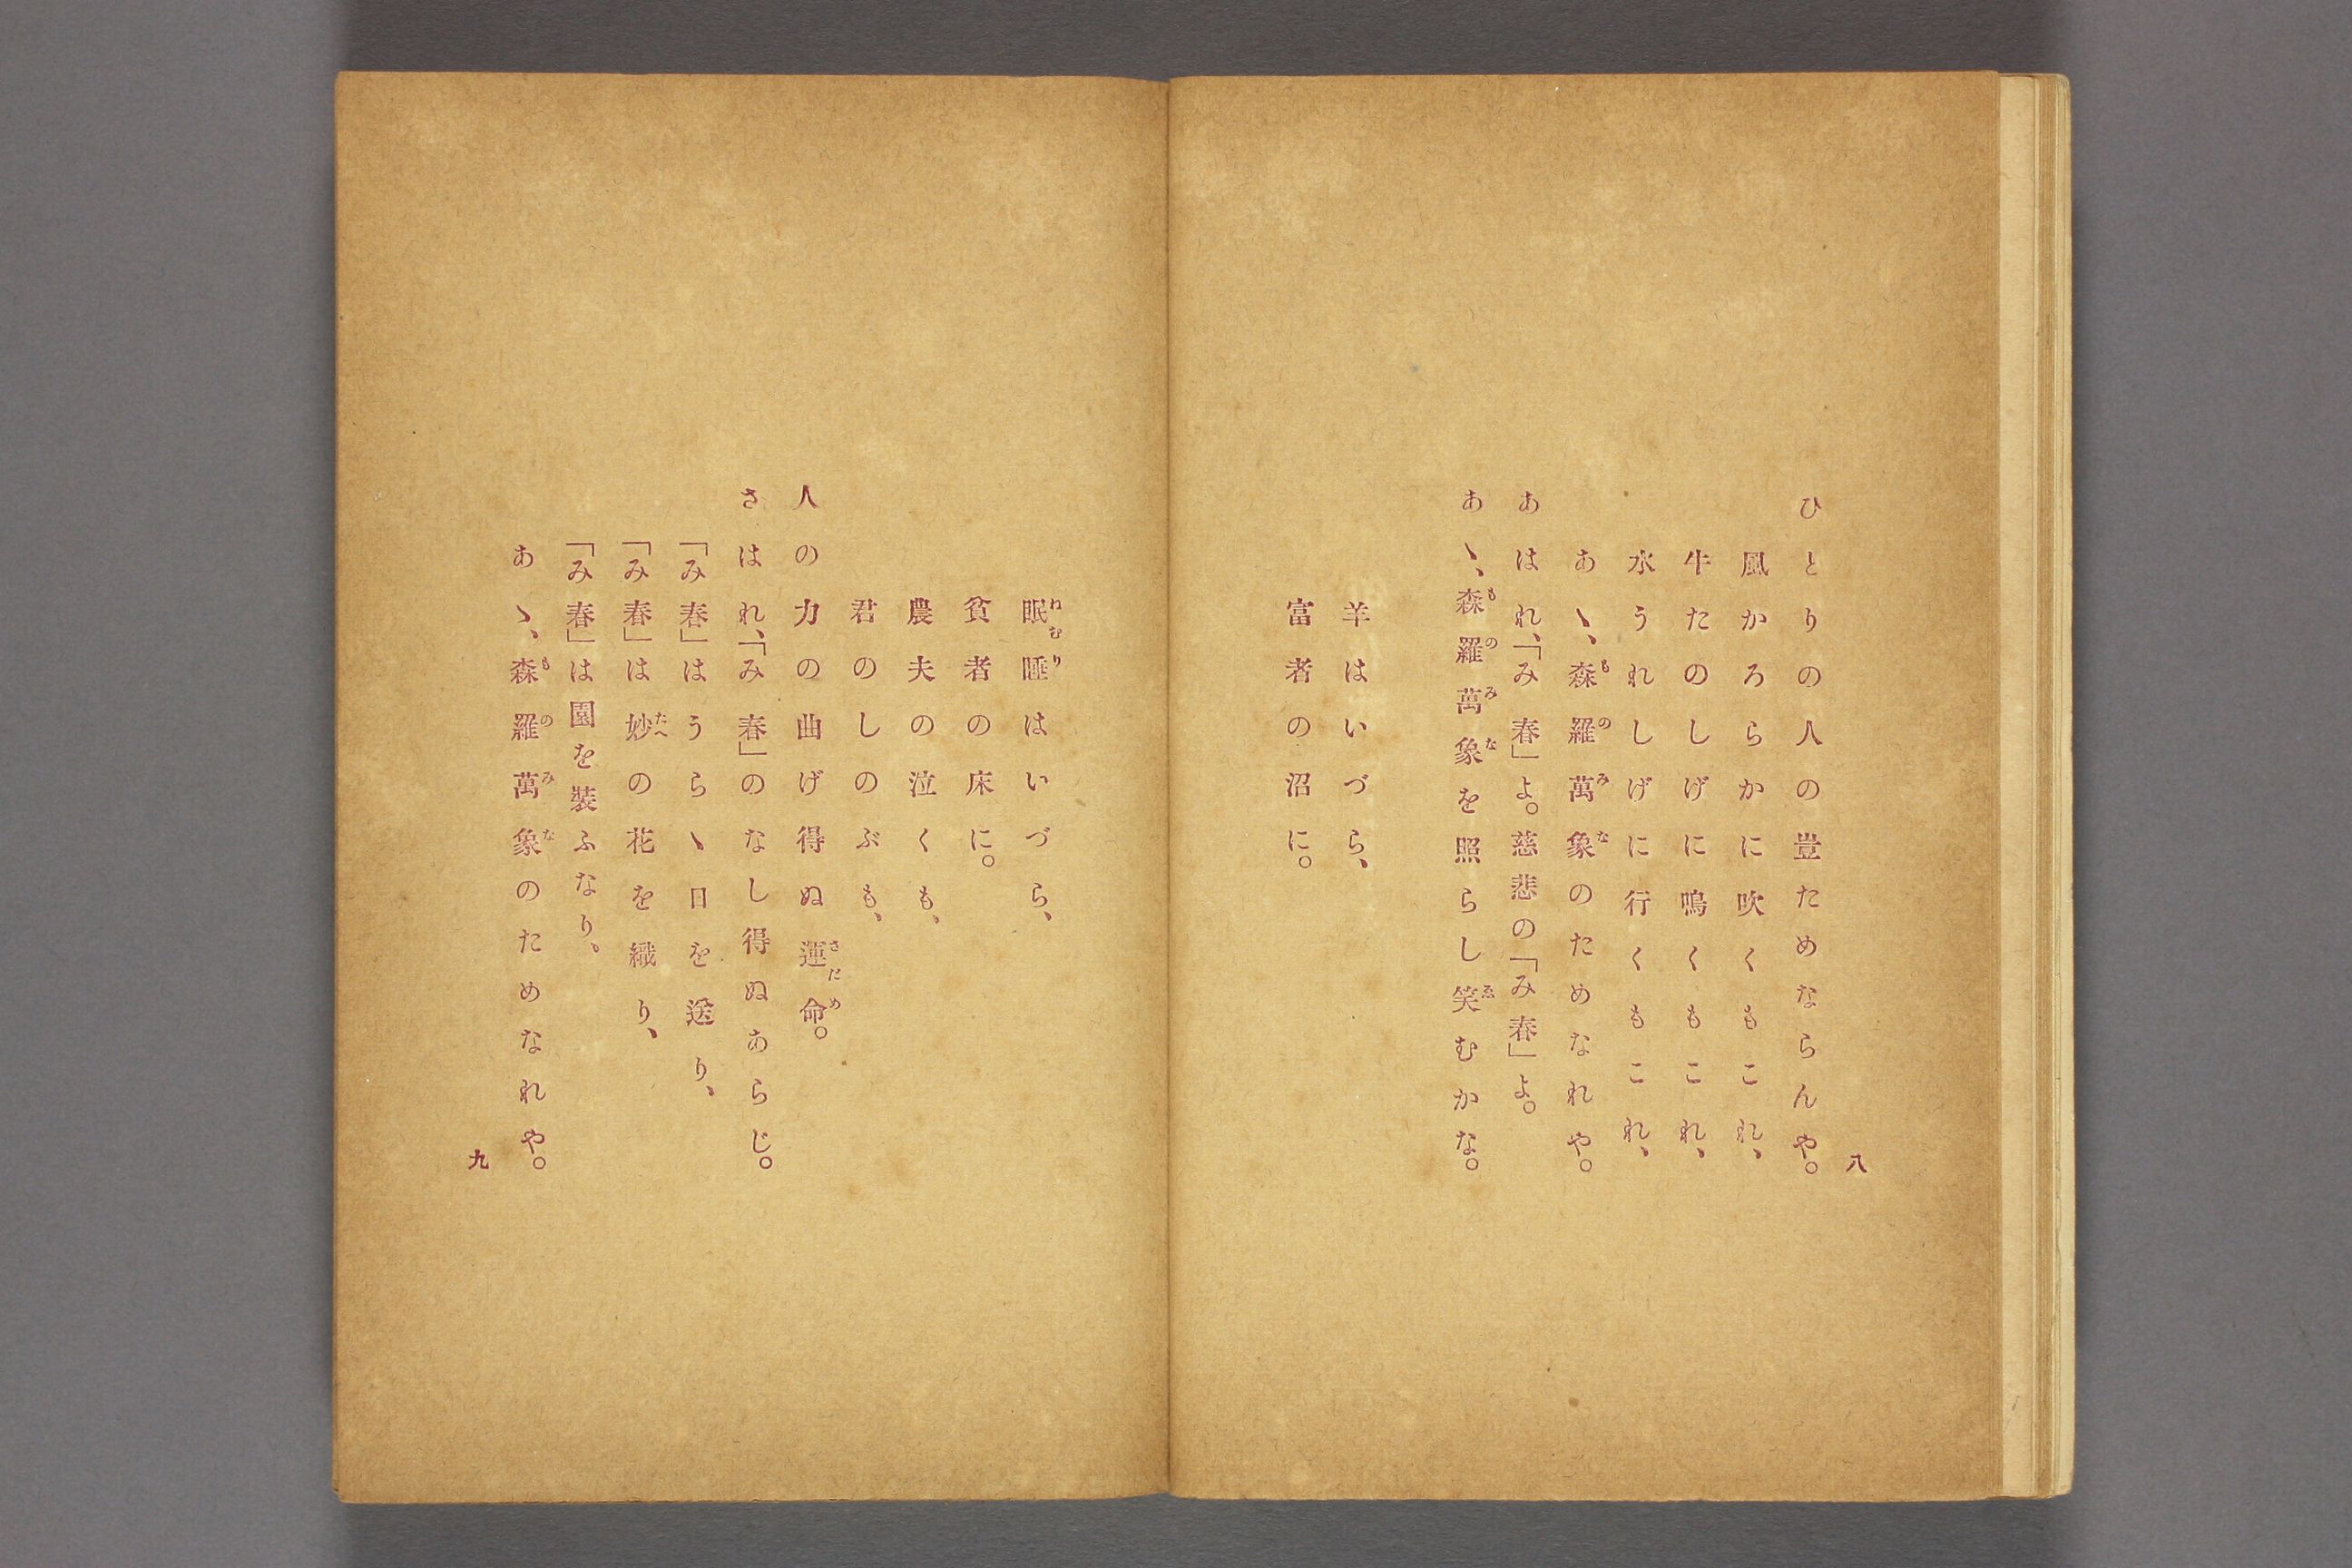 八
ひとりの人の豈ためならんや。
風かろらかに吹くもこれ、
牛たのしげに鳴くもこれ、
水うれしげに行くもこれ、
あゝ、森羅萬象のためなれや。
あはれ、「み春」よ。慈悲の「み春」よ。
あゝ、森羅萬象を照らし笑むかな。
羊はいづら、
富者の沼に。
眠睡はいづら、
貧者の床に。
農夫の泣くも、
君のしのぶも、
人の力の曲げ得ぬ運命。
さはれ、「み春」のなし得ぬあらじ。
「み春」はうらゝ日を送り、
「み春」は妙の花を織り、
「み春」は園を裝ふなり、
あゝ、森羅萬象のためなれや。
九